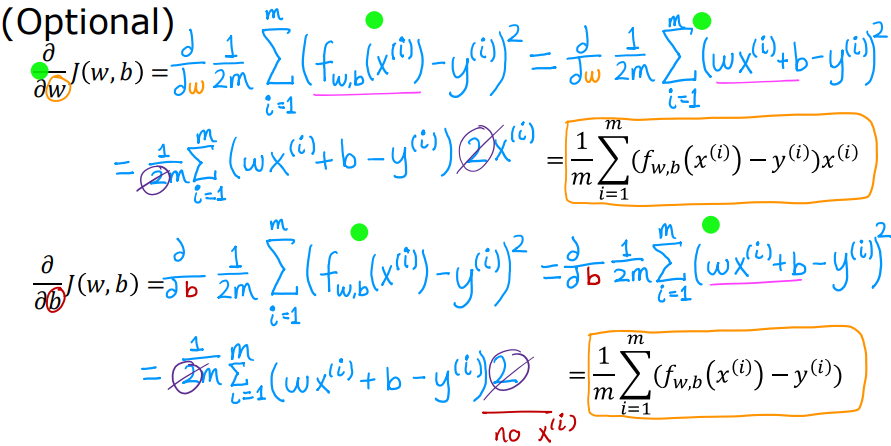 (Optional)
∂/∂w J(w, b) = d/dw 1/2m ∑_{i=1}^{m} (f_{w,b}(x^{(i)}) - y^{(i)})^2 = d/dw 1/2m ∑_{i=1}^{m} (wx^{(i)} + b - y^{(i)})^2
= 1/2m ∑_{i=1}^{m} (wx^{(i)} + b - y^{(i)}) 2x^{(i)} = 1/m ∑_{i=1}^{m} (f_{w,b}(x^{(i)}) - y^{(i)})x^{(i)}
∂/∂b J(w, b) = ∂/∂b 1/2m ∑_{i=1}^{m} (f_{w,b}(x^{(i)}) - y^{(i)})^2 = ∂/∂b 1/2m ∑_{i=1}^{m} (wx^{(i)} + b - y^{(i)})^2
= 1/2m ∑_{i=1}^{m} (wx^{(i)} + b - y^{(i)}) 2 = 1/m ∑_{i=1}^{m} (f_{w,b}(x^{(i)}) - y^{(i)})
no x^{(i)}